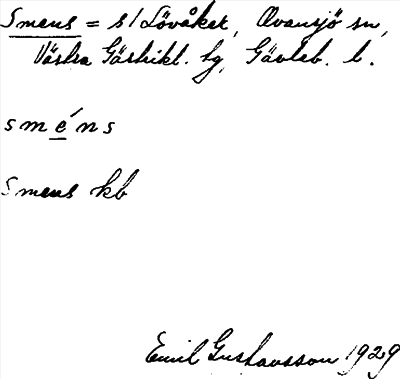 Smens = s/Lövåker, Ovansjö sn,
Västra Gästrikl. tg, Gävleb. l.
sméns
Smens kb
Emil Gustavsson 1929